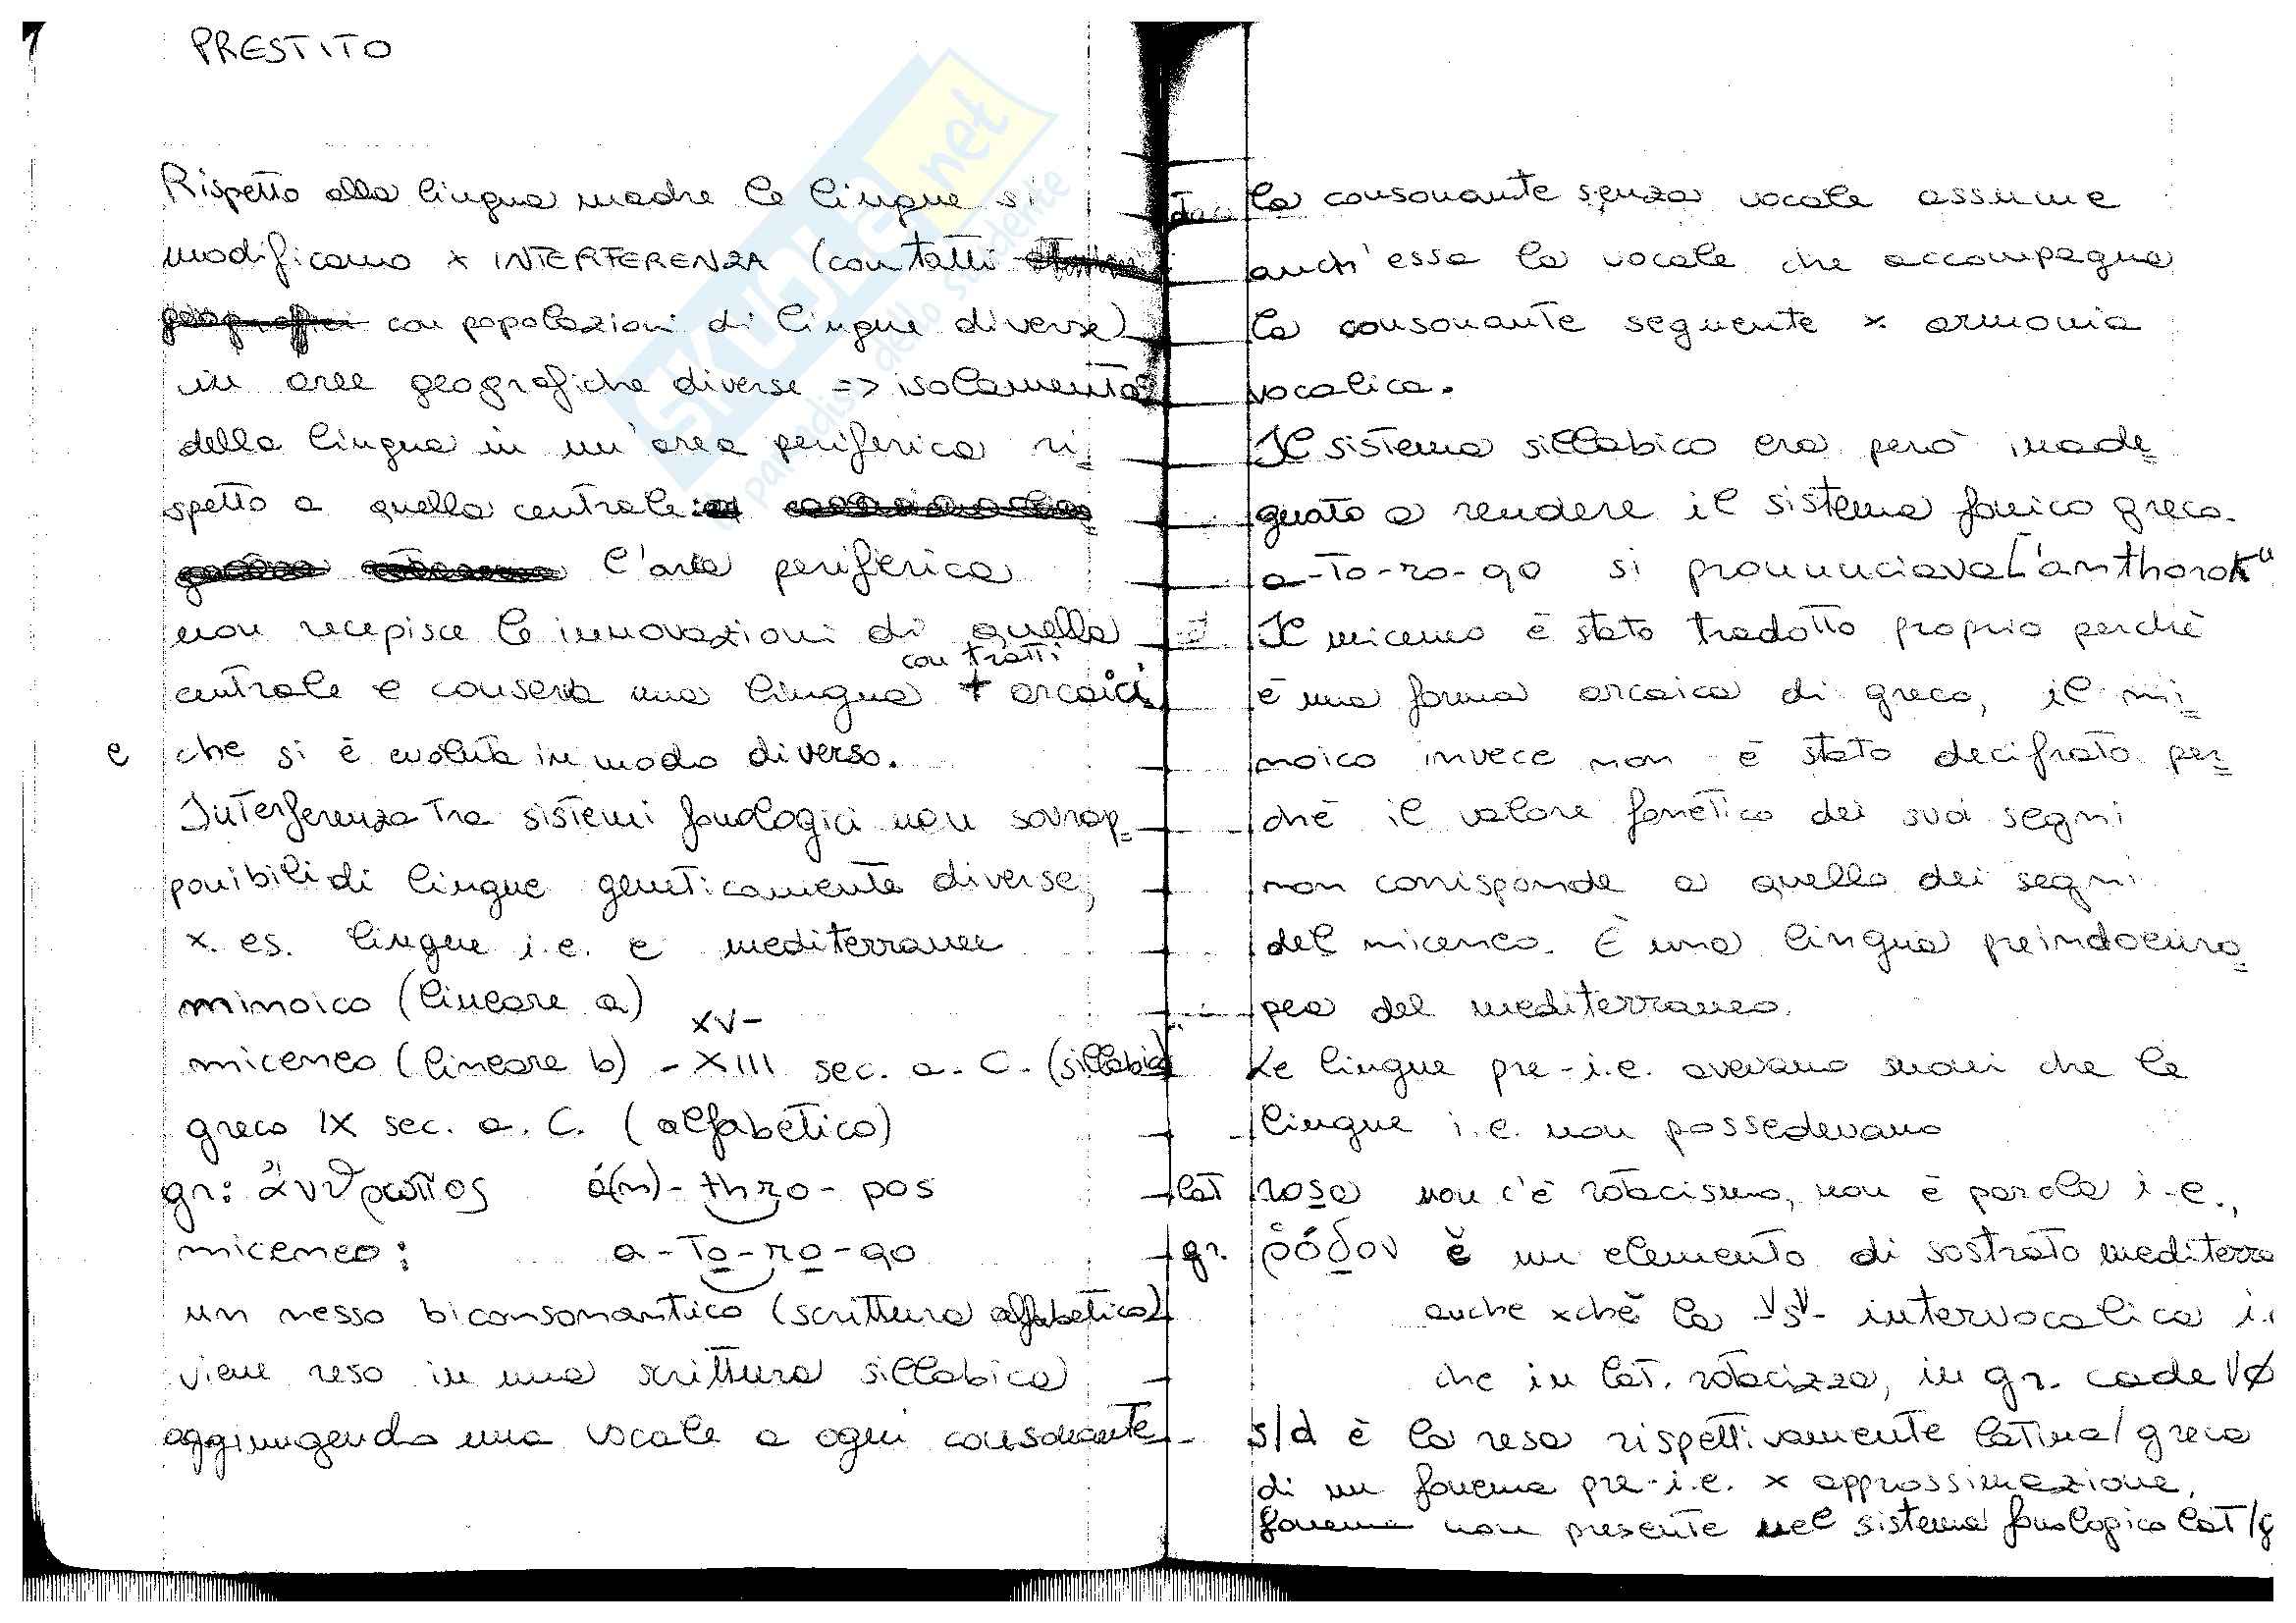 PRESTITO
Rispetto alla lingua madre le lingue si
modificano x INTERFERENZA (contatti
con popolazioni di lingue diverse)
in aree geografiche diverse => isolamento
della lingua in un'area periferica ri=
spetto a quella centrale:
l'area periferica
non recepisce le innovazioni di quella
con tratti
centrale e conserva una lingua + arcaici
e che si è evoluta in modo diverso.
Interferenza tra sistemi fonologici non sovrap=
ponibili di lingue geneticamente diverse,
x. es. lingue i.e. e mediterranee
minoico (lineare a)
XV-
miceneo (lineare b) - XIII sec. a. C. (sillabico)
greco IX sec. a. C. (alfabetico)
gr: ἄνθρωπος á(n)- thro- pos
miceneo: a-To-ro-qo
un nesso biconsonantico (scrittura alfabetica)
viene reso in una scrittura sillabica
aggiungendo una vocale a ogni consonante
la consonante senza vocale assume
anch'essa la vocale che accompagna
la consonante seguente x armonia
vocalica.
Il sistema sillabico era però inade=
guato a rendere il sistema fonico greco.
a-To-ro-qo si pronunciava
Il miceneo è stato tradotto proprio perchè
è una forma arcaica di greco, il mi=
noico invece non è stato decifrato per=
chè il valore fonetico dei suoi segni
non corrisponde a quello dei segni
del miceneo. È una lingua preindoeuro=
pea del mediterraneo.
Le lingue pre-i.e. avevano suoni che le
lingue i.e. non possedevano
lat rosa non c'è rotacismo, non è parola i-e.,
gr. ῥόδον è un elemento di sostrato mediterra
anche xchè la -VsV- intervocalica i.
che in lat. rotacizza, in gr. cade VØ
s/d è la resa rispettivamente latina/greca
di un fonema pre-i.e. x approssimazione,
fonema non presente nel sistema fonologico lat/g
SKUOLA.net
paradiso dello studente